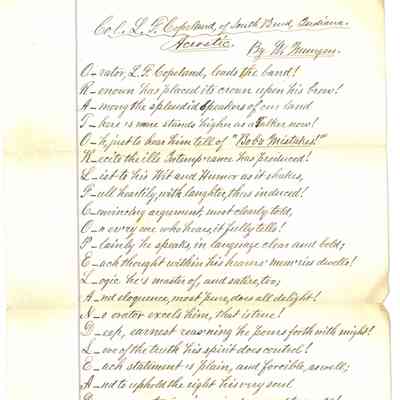 Col. L. F. Copeland, of South Bend, Indiana.
Acrostic.
By M. Munger.
O-rator, L. F. Copeland, leads the band!
R-enown has placed its crown upon his brow!
A-mong the splendid speakers of our land
T-here is none stands higher as a Talker, now!
O-h, just to hear him tell of "Bob's Mistakes!"
R-ecite the ills Intemp'rance has produced!
L-ist to his Wit and Humor as it shakes,
F-ull heartily, with laughter, thus induced!
C-onvincing argument, most clearly told,
O-n every one who hears, it fully tells!
P-lainly he speaks, in language clear and bold;
E-ach thought within his hearers' mem'ries dwells!
L-ogic he's master of, and satire, too;
A-nd eloquence, most pure, does all delight!
N-o orator excels him, that is true!
D-eep, earnest reasoning he pours forth with might!
L-ove of the truth his spirit does control!
E-ach statement is plain, and forcible, as well;
A-nd to uphold the right his very soul